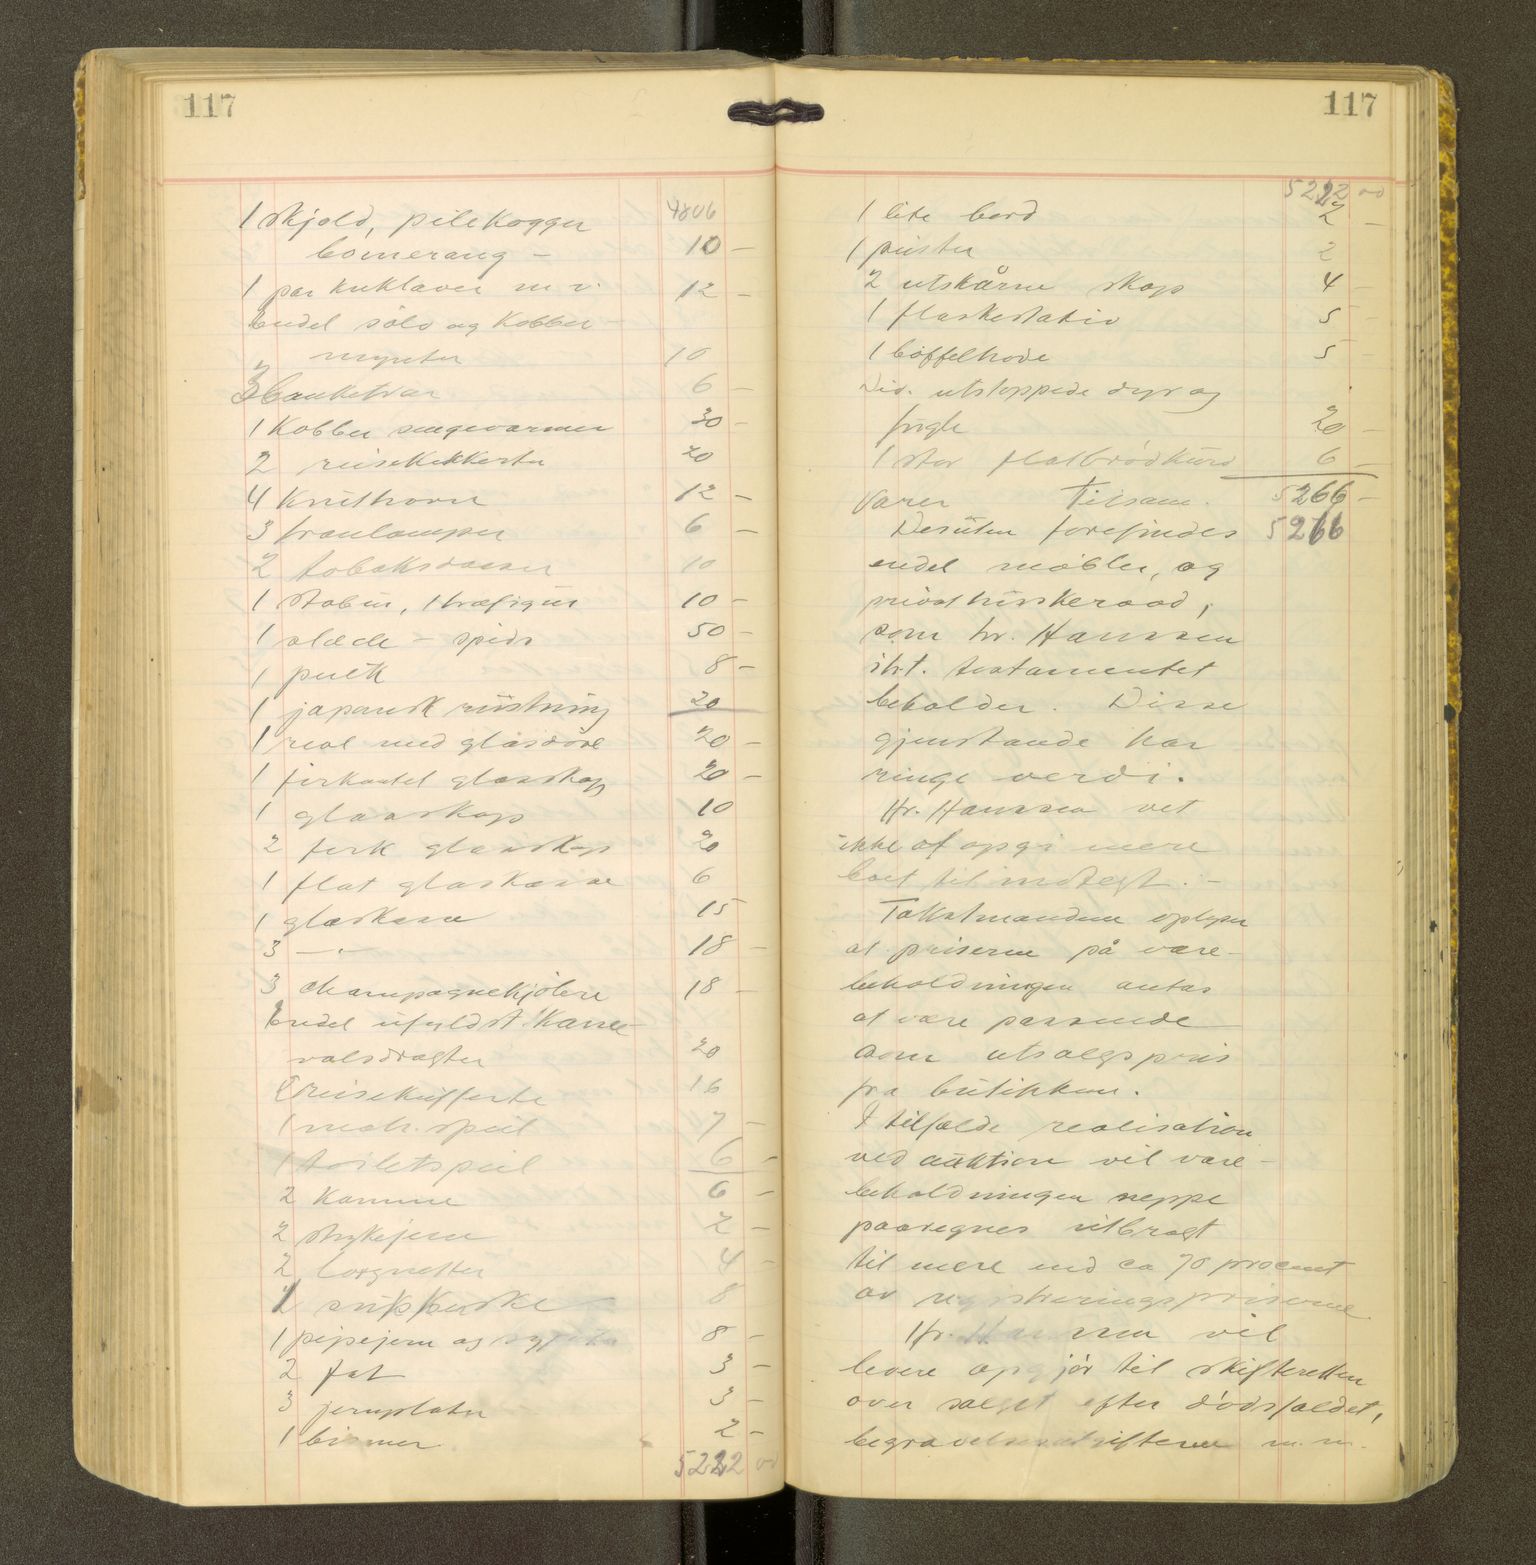 117
4806
1 skjold, pilekogger
bomerang - 10 -
1 par kuklaver m v. 12 -
Endel sölv og kobber
mynter 10
3 banketrær 6 -
1 kobber sengevarmer 30 -
2 reisekikkerter 20
4 kruthorn 12 -
3 tranlamper 6 -
2 tobaksdaaser 10
1 stabur, 1 træfigur 10 -
1 slæde - spids 50 -
1 pulk 8 -
1 japansk rüstning 20
1 reol med glasdöre 20 -
1 firkantet glasskap 20 -
1 glasskap 10
2 firk glasskap 20
1 flat glaskasse 6
1 glaskasse 15
3 -"- 18 -
3 champagnekjölere 18 -
Endel ufuldst. karne-
valsdragter 20
reisekufferte 16
1 mah. speil 7 -
1 toiletspeil 6 -
2 kamme 6 -
2 strykejern 2 -
2 lorgnetter 4 -
8
1 pipejern og 8 -
2 fat 3 -
3 jernplater 3 -
1 bismer 2 -
5222 00
117
5222 00
1 lite bord 2 -
1 puster 2
2 utskårne skap 4 -
1 flaskestativ 5 -
1 böffelhode 5
Div. utstoppede dyr og
fugle 20 -
1 stor flatbrödkurv 6 -
Varer Tilsam. 5266 -
Desüten forefindes 5266
endel möbler, og
privat husskeraad,
som hr. Hanssen
iht. testamentet
beholder. Disse
gjenstande har
ringe verdi.
Hr. Hanssen vet
ikke at opgi mere
boet til indtegt. -
Takstmændene oplyser
at priserne på vare-
beholdningen antas
at være passende
som utsalgspris
fra butikken.
I tilfælde realisation
ved auktion vil vare-
beholdningen neppe
paaregnes utbragt
til mere end ca 70 procent
av registreringspriserne.
Hr. Hanssen vil
levere opgjör til skifteretten
over salget efter dödsfaldet,
begravelsesutgifterne m. m.